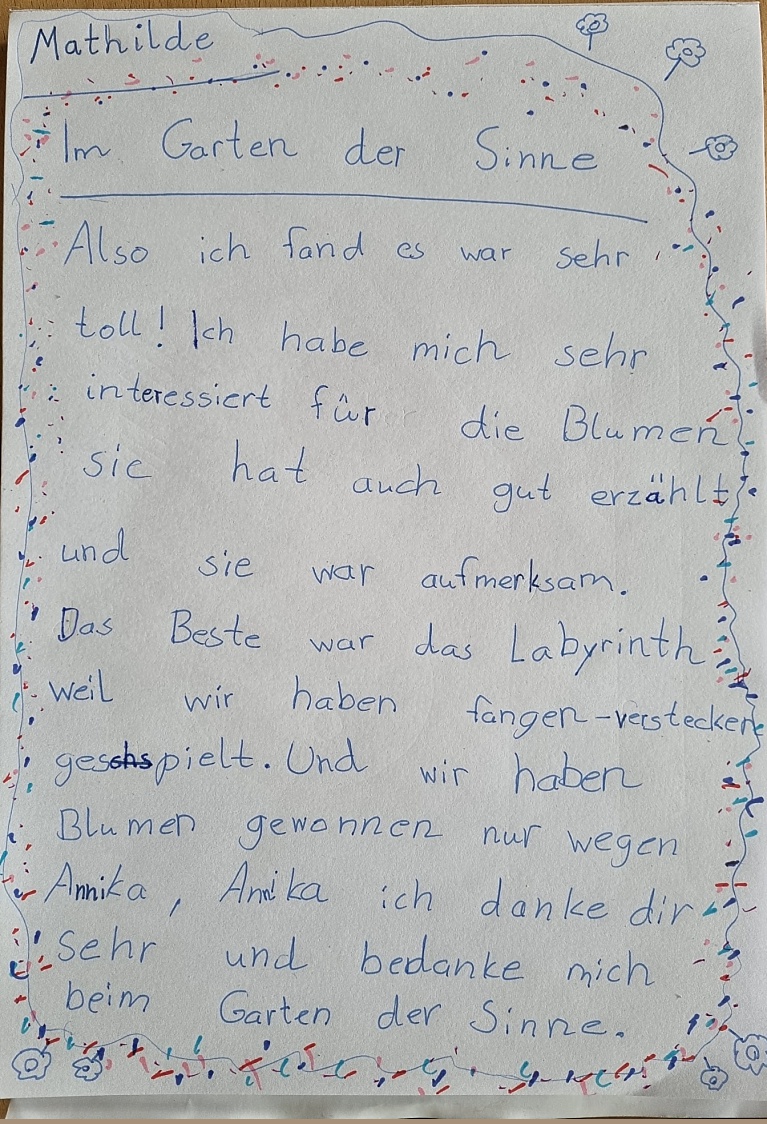 Mathilde
Im Garten der Sinne
Also ich fand es war sehr
toll! Ich habe mich sehr
interessiert für die Blumen
sie hat auch gut erzählt
und sie war aufmerksam.
Das Beste war das Labyrinth
weil wir haben fangen-verstecken
gespielt. Und wir haben
Blumen gewonnen nur wegen
Annika, Annika ich danke dir
sehr und bedanke mich
beim Garten der Sinne.